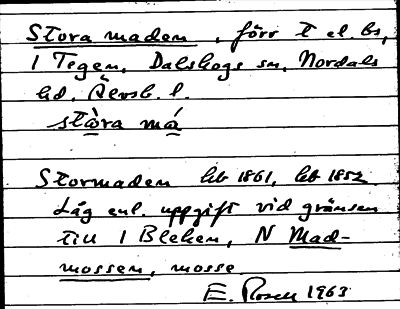 Stora maden, förr t el. bs,
1 Tegen, Dalskogs sn, Nordals
hd, Älvsb. l.
stòra má
Stormaden hb 1861, hb 1852
Låg enl. uppgift vid gränsen
till 1 Bleken, N Mad-
mossen, mosse
E. Rosen 1963